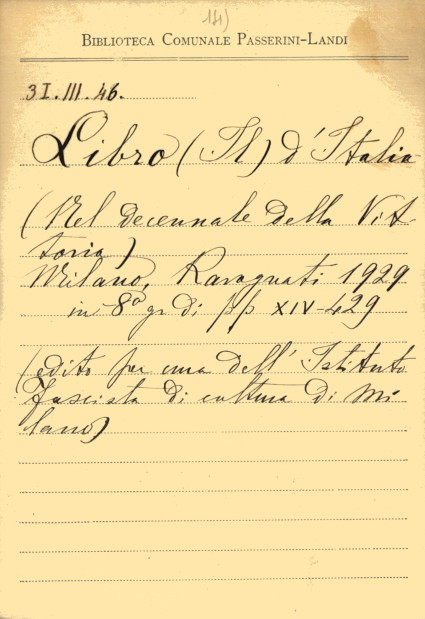 14)
BIBLIOTECA COMUNALE PASSERINI-LANDI
3I.III.46.
Libro (Il) d'Italia
(Nel decennale della Vit-
toria)
Milano, Ravagnati 1929
in 8º gr di pp XIV-429
(edito per cura dell'Istituto
fascista di cultura di Mi
lano)